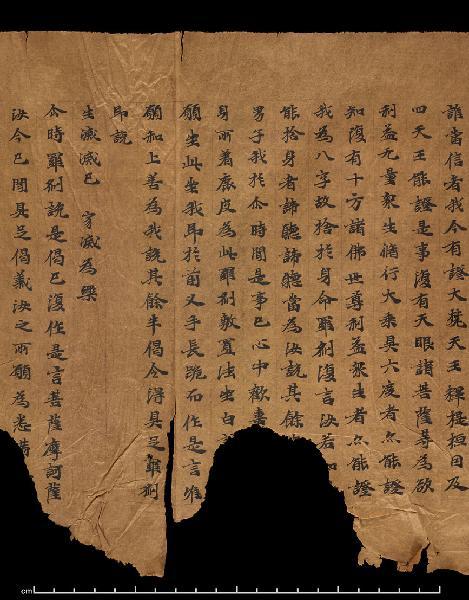 誰當信者我今有證大梵天王釋提桓因及
四天王能證是事復有天眼諸菩薩等為欲
利益无量衆生脩行大乘具六度者亦能證
知復有十方諸佛世尊利益衆生者亦能證
我為八字故捨於身命羅剎復言汝若如
能捨身者諦聽諦聽當為汝說其餘
男子我於尒時聞是事已心中歡喜
身所著鹿皮為此羅剎敷置法坐白
願坐此坐我即於前叉手長跪而作是言唯
願和上善為我說其餘半偈令得具足羅剎
即說
生滅滅已 寂滅為樂
尒時羅剎說是偈已復作是言菩薩摩訶薩
汝今已聞具足偈義汝之所願為悉滿
cm